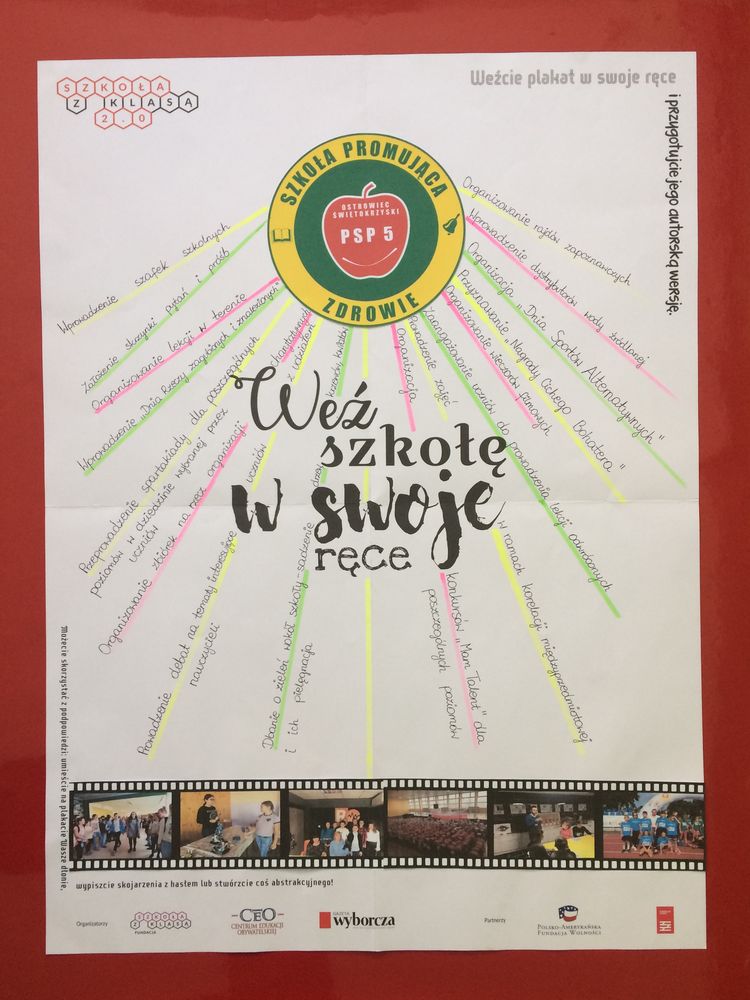 SZKOŁA
Z KLASĄ
2.0
Weźcie plakat w swoje ręce
i przygotujcie jego autorską wersję.
SZKOŁA PROMUJĄCA
OSTROWIEC
ŚWIĘTOKRZYSKI
PSP 5
ZDROWIE
Wprowadzenie szafek szkolnych
Założenie skrzynki pytań i próśb
Organizowanie lekcji w terenie
Wprowadzenie "Dnia Rzeczy zagubionych i znalezionych"
Przeprowadzenie spartakiady dla poszczególnych
poziomów w dziedzinie wybranej przez
uczniów
Organizowanie zbiórek na rzecz organizacji
charytatywnych
Prowadzenie debat na tematy interesujące uczniów
z udziałem
nauczycieli
Dbanie o zieleń wokół szkoły - sadzenie drzew
krzewów, kwiatów
i ich pielęgnacja
Organizacja
konkursów "Mam Talent" dla
poszczególnych poziomów
Prowadzenie zajęć
w ramach korelacji międzyprzedmiotowej
Zaangażowanie uczniów do prowadzenia lekcji odwróconych
Organizowanie wieczorów filmowych
Przyznawanie "Nagrody Cichego Bohatera"
Organizacja "Dnia Sportów Alternatywnych"
Wprowadzenie dystrybutorów wody źródlanej
Organizowanie rajdów zapoznawczych
Weź
szkołę
w swoje
ręce
Możecie skorzystać z podpowiedzi: umieście na plakacie Wasze dłonie,
wypiszcie skojarzenia z hasłem lub stwórzcie coś abstrakcyjnego!
Organizatorzy
SZKOŁA
Z KLASĄ
FUNDACJA
CEO
CENTRUM EDUKACJI
OBYWATELSKIEJ
GAZETA
wyborcza
Partnerzy
POLSKO-AMERYKAŃSKA
FUNDACJA WOLNOŚCI